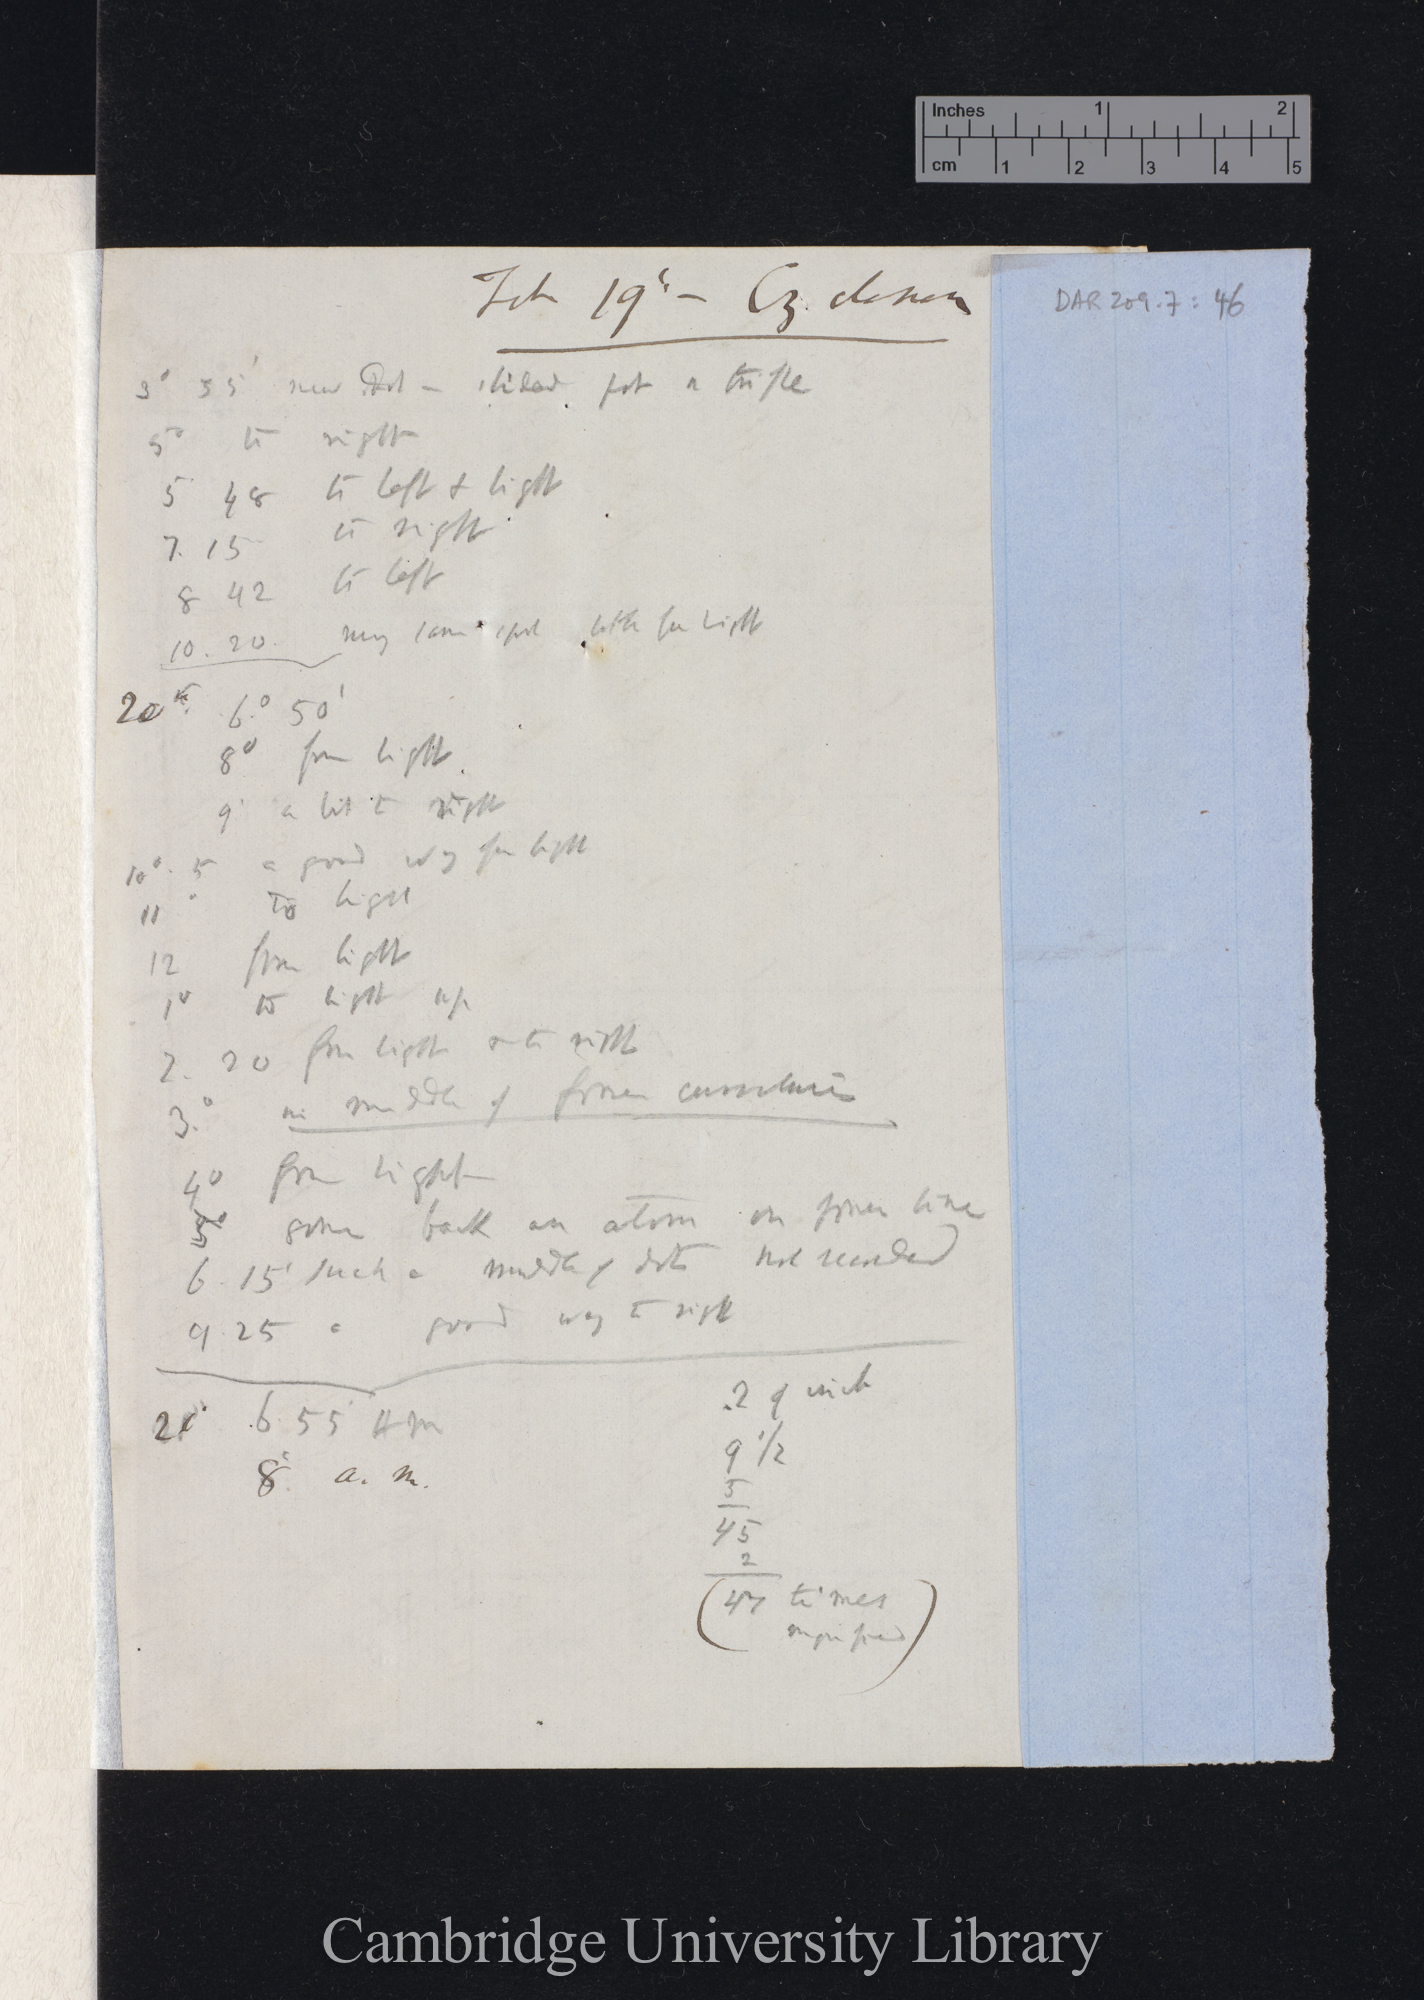 Inches 1 2
cm 1 2 3 4 5
DAR 209.7: 46
Feb 19th – Cyclamen
3° 35' new Dot – slided pot a trifle
5° to right
5 48 to left & light
7. 15 to right
8 42 to left
10. 20. very same spot little from light
20th 6.° 50'
8° from light
9° a bit to right
10°. 5 a good way from light
11° to light
12 from light
1° to light up
2. 20 from light & to right
3.° in middle of former curvatures
4° from light
5° gone back an atom on former line
6. 15' such a middle of dots not recorded
9 25 a good way to right
21 6. 55' A m
8° a. m.
.2 of inch
9 1/2
5
45
2
(47 times
magnified)
Cambridge University Library